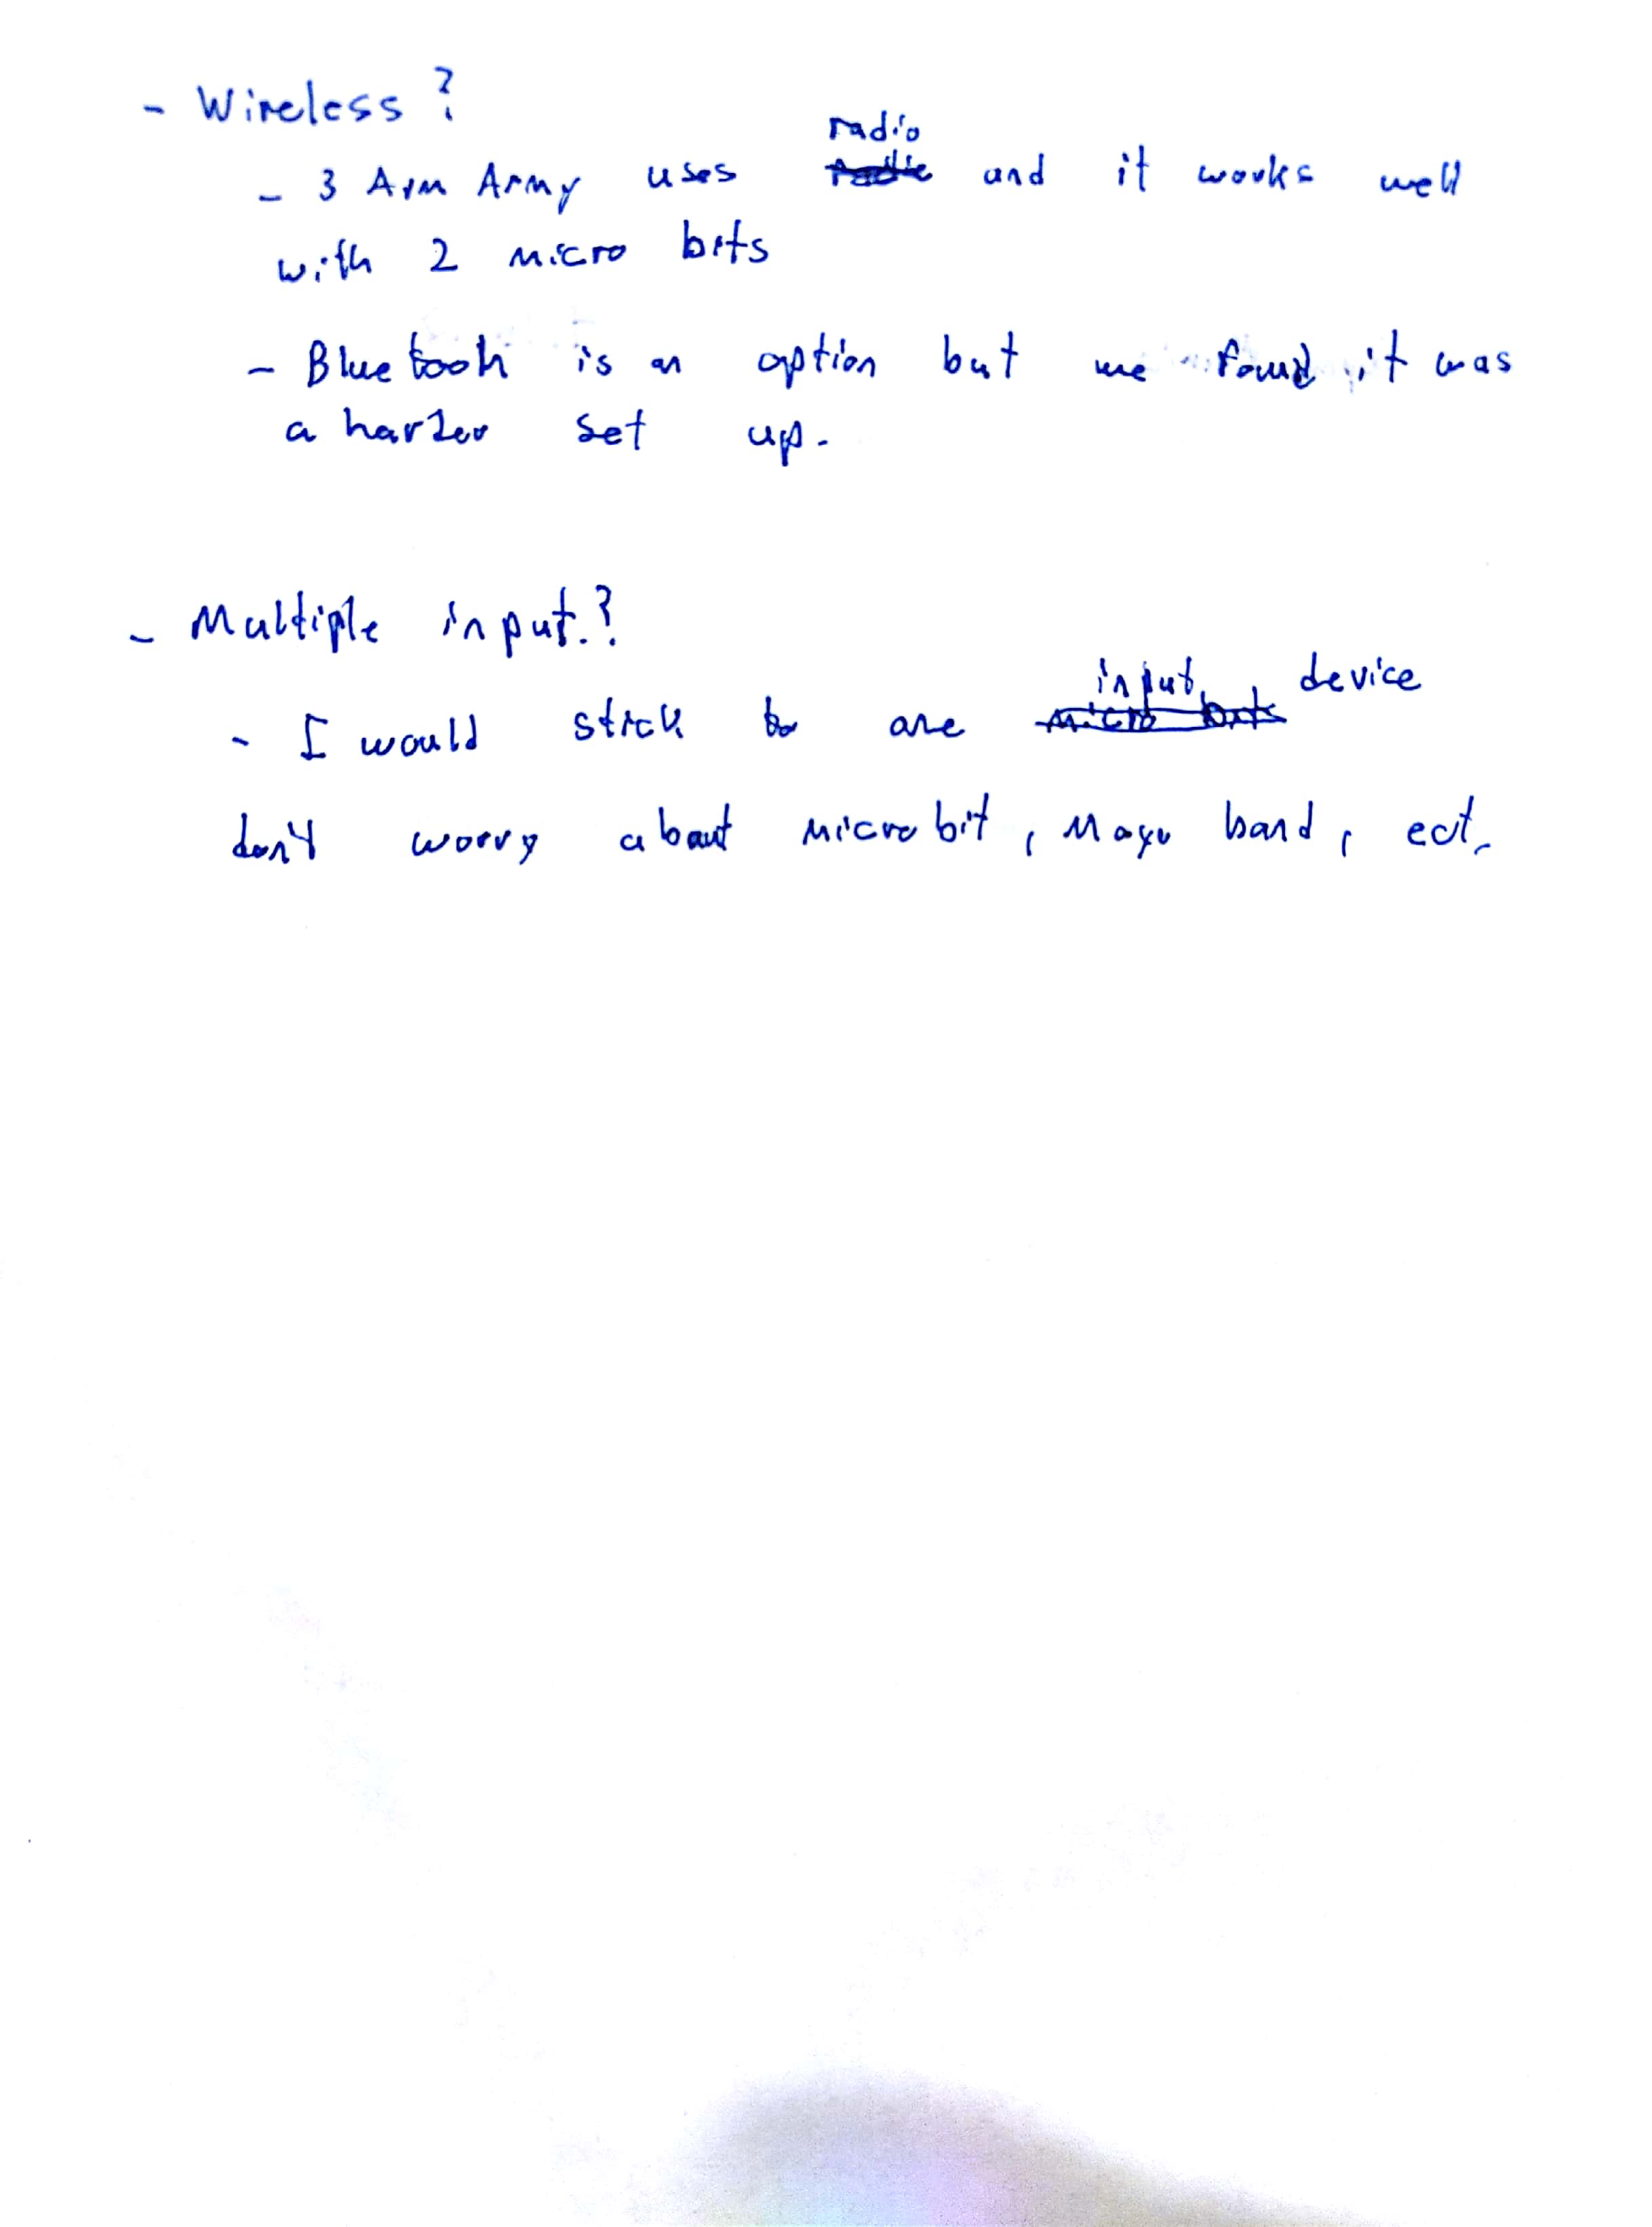 - Wireless?
- 3 Arm Army uses radio and it works well
with 2 micro bits
- Bluetooh is an option but we found it was
a harder set up.
- Multiple input.?
- I would stick to one input device
don't worry about microbit, Mayo band, ect.